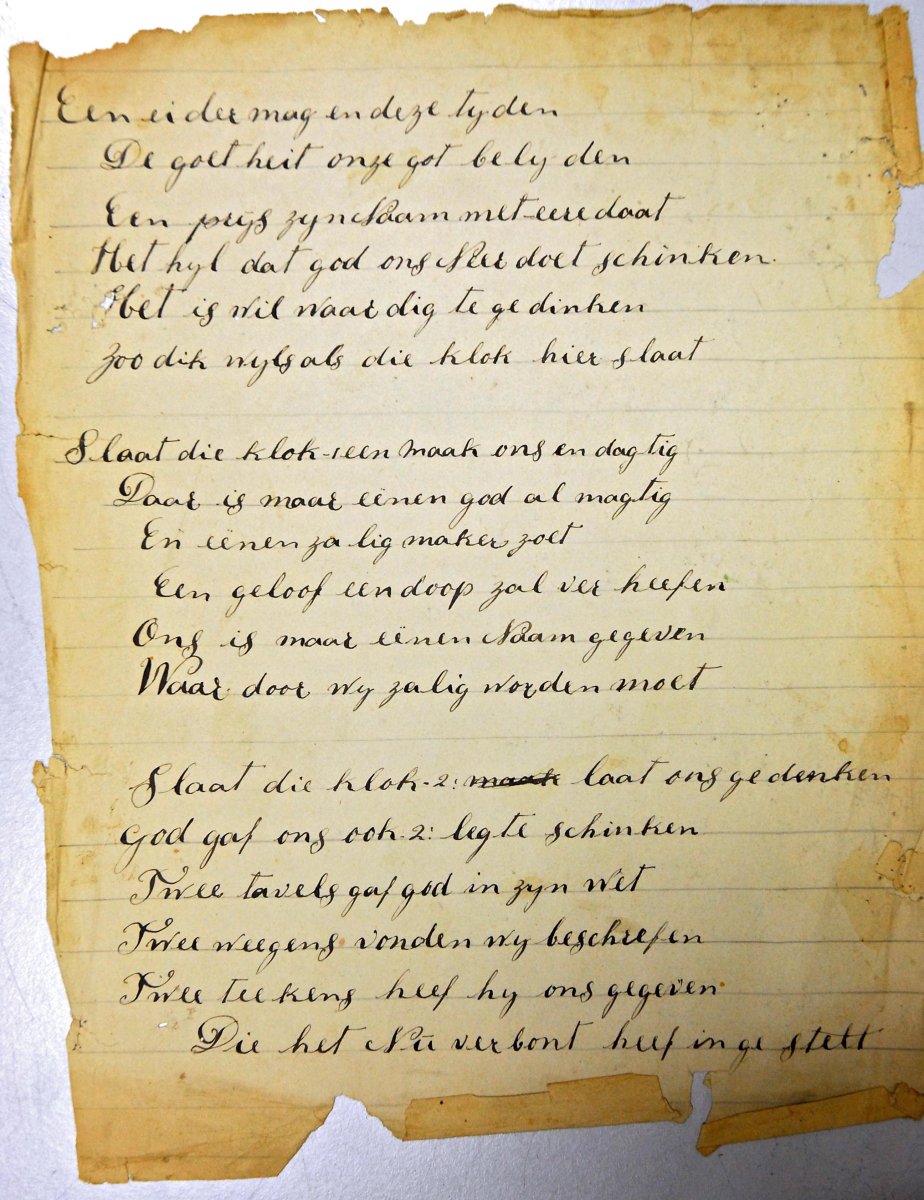 Een eider mag en deze tyden
De goet heit onze got bely den
Een prijs zyn Naam met eere daat
Het hyl dat god ons Neer doet schinken.
Het is wil waar dig te ge dinken
Zoo dik wyls als die klok hier slaat
Slaat die klok-1 een maak ons en dag tig
Daar is maar eënen god al magtig
En eënen za lig maker zoet
Een geloof een doop zal ver heefen
Ons is maar eënen Naam gegeven
Waar door wy zalig worden moet
Slaat die klok-2: maak laat ons gedenken
God gaf ons ook 2: legte schinken
Twee tavels gaf god in zyn wet
Twee weegens vonden wy beschrefen
Twee teekens heef hy ons gegeven
Die het Nu verbont heef in ge stelt